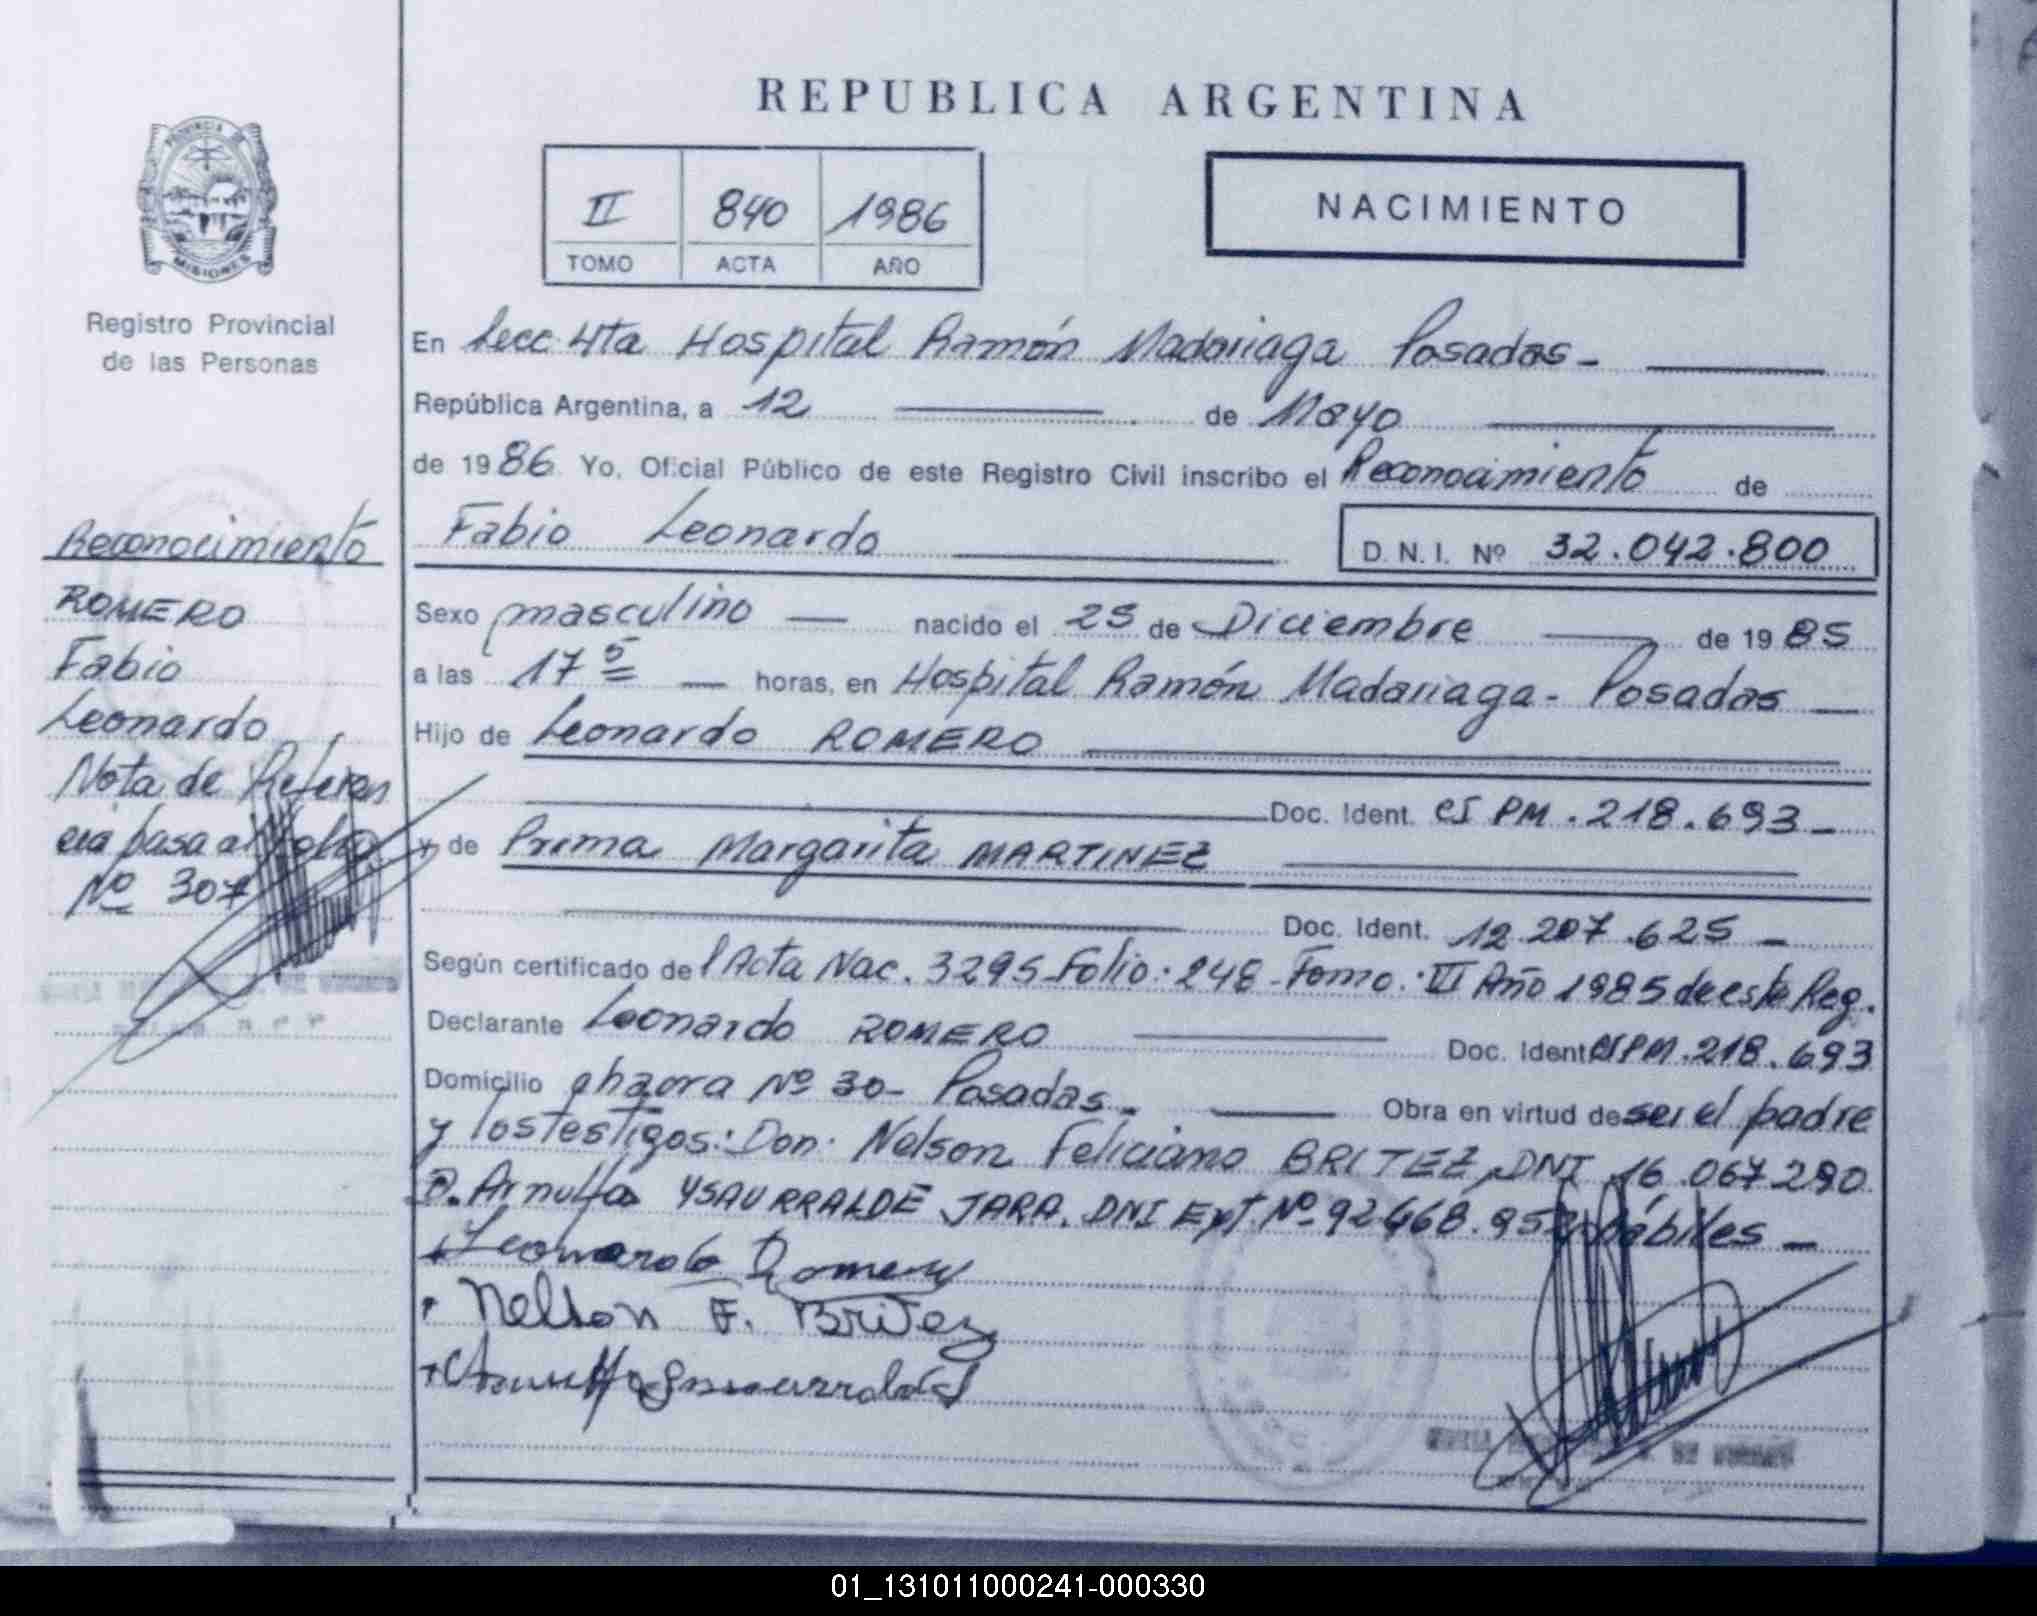 REPUBLICA ARGENTINA
PROVINCIA DE
MISIONES
II 840 1986
TOMO ACTA AÑO
NACIMIENTO
Registro Provincial
de las Personas
En Secc 4ta Hospital Ramón Madariaga Posadas -
República Argentina, a 12 de Mayo
de 1986 Yo, Oficial Público de este Registro Civil inscribo el Reconocimiento de
Fabio Leonardo D. N. I. Nº 32.042.800
Reconocimiento
ROMERO
Fabio
Leonardo
Nota de Referen
cia pasa al folio
Nº 307
Sexo masculino nacido el 25 de Diciembre de 1985
a las 17 5 horas, en Hospital Ramón Madariaga - Posadas
Hijo de Leonardo ROMERO
Doc. Ident. CI PM . 218.693 -
y de Prima Margarita MARTINEZ
Doc. Ident. 12.207.625 -
Según certificado del Acta Nac. 3295 Folio: 248 - Tomo: III Año 1985 de este Reg.
Declarante Leonardo ROMERO Doc. Ident CI PM . 218.693
Domicilio chacra Nº 30 - Posadas. - Obra en virtud de ser el padre
y los testigos: Don: Nelson Feliciano BRITEZ, DNI 16.067290
D. Arnulfa YSAURRALDE JARA. DNI Ext. Nº 92468. hábiles -
Leonardo Romero
Nelson F. Britez
01_131011000241-000330